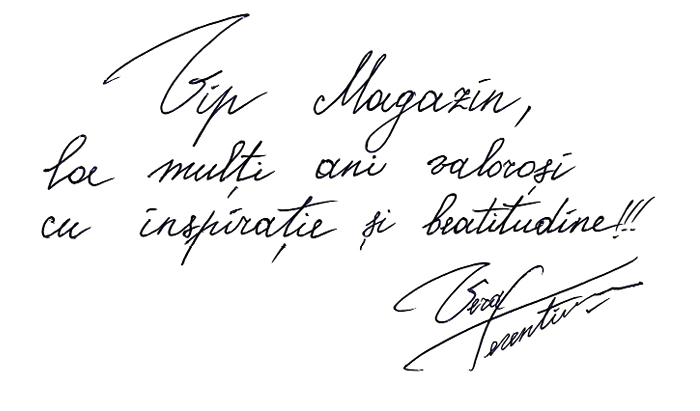 Vip Magazin,
La mulți ani valoroși
cu inspirație și beatitudine!!!
Vera
Terentiev